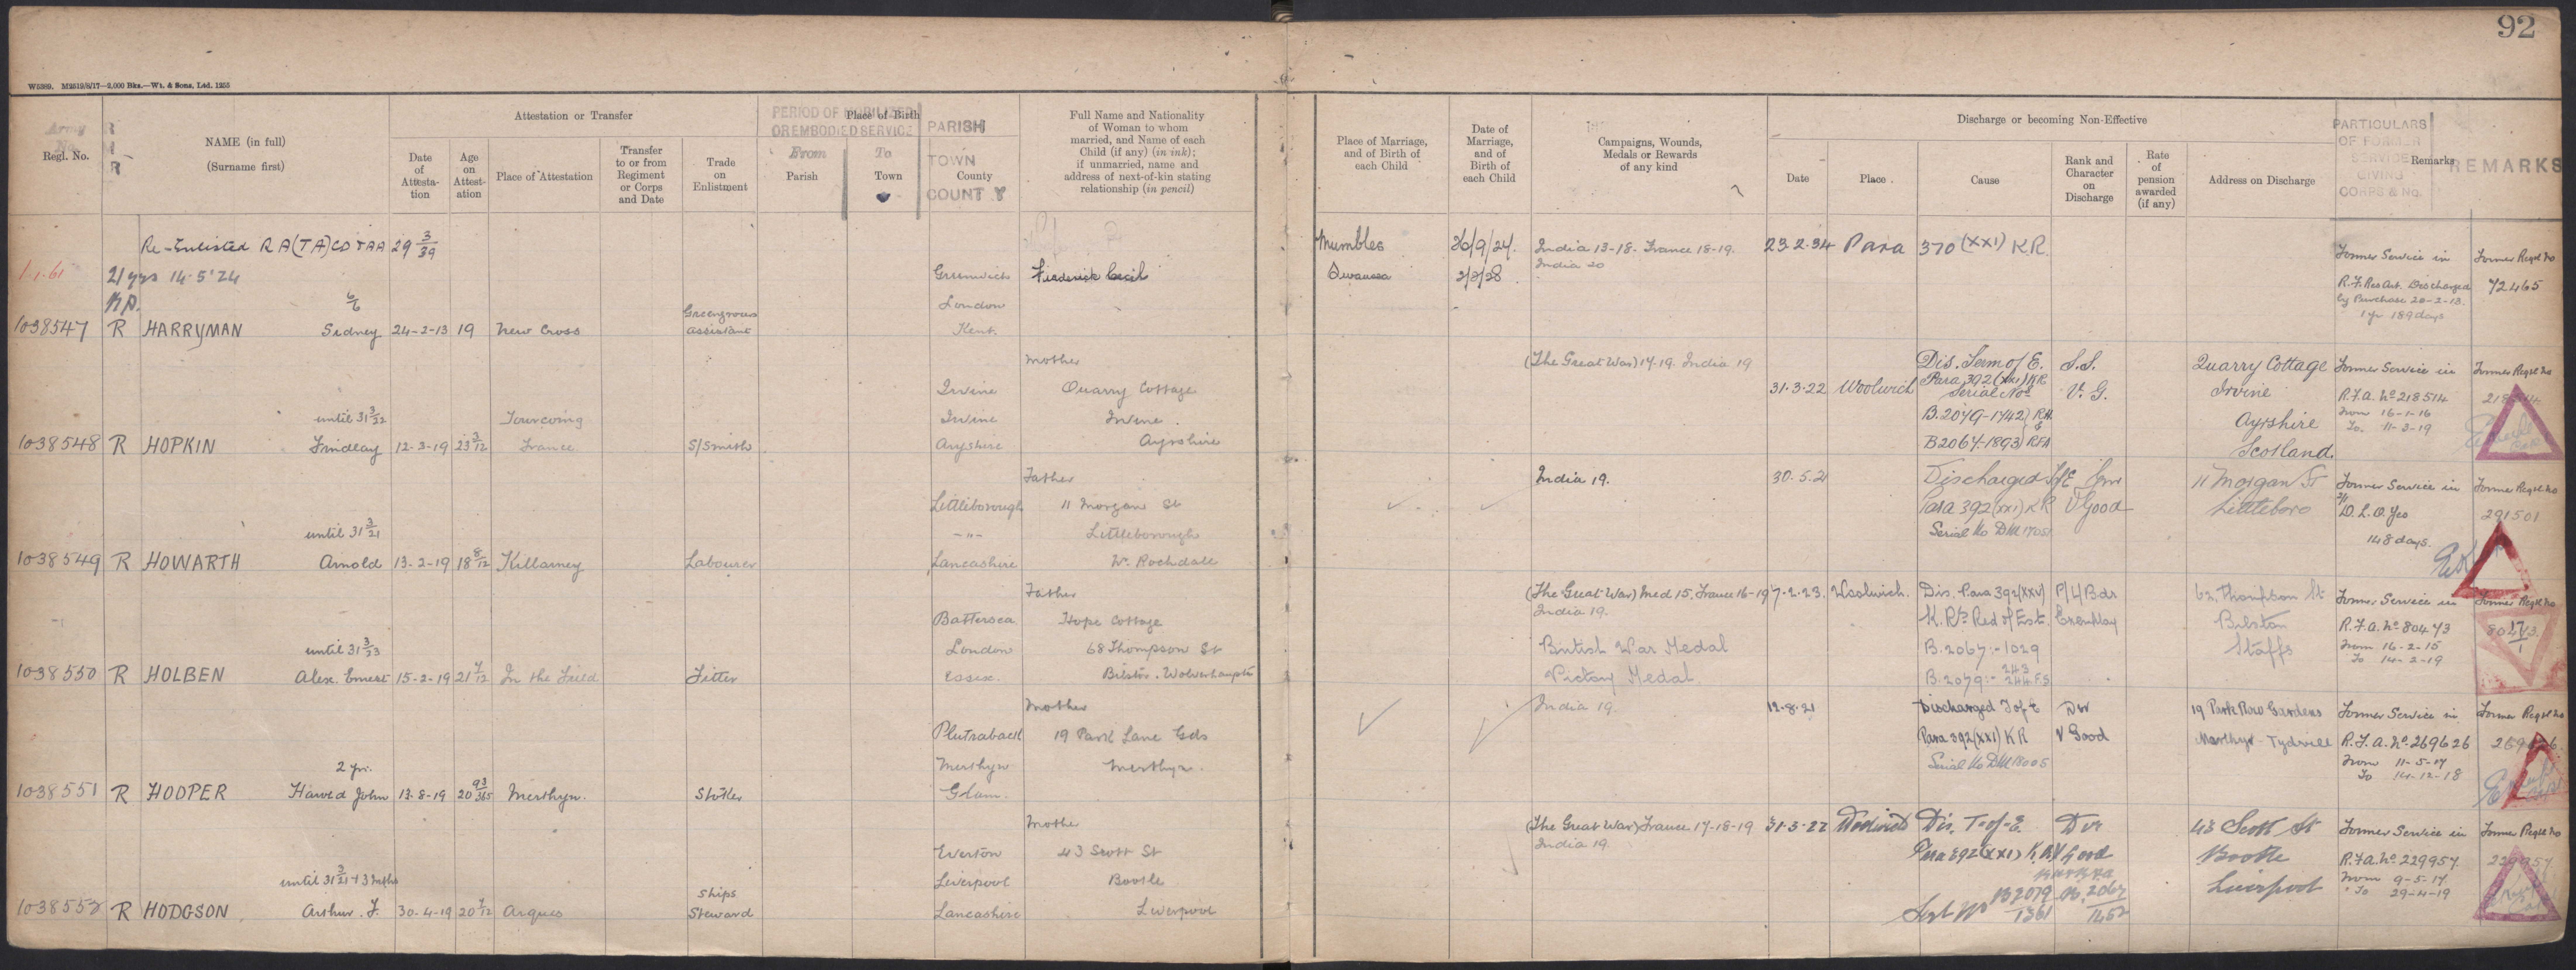 92
W5389. M2519/8/17—2,000 Bks.—Wt. & Sons, Ltd. 1255
Army No.
Regl. No.
R I R
NAME (in full)
(Surname first)
Attestation or Transfer
Date of Attesta-tion
Age on Attest-ation
Place of Attestation
Transfer to or from Regiment or Corps and Date
Trade on Enlistment
PERIOD OF MOBILIZED OR EMBODIED SERVICE
From
To
Place of Birth
Parish
Town
County
PARISH
TOWN
COUNTY
Full Name and Nationality of Woman to whom married, and Name of each Child (if any) (in ink); if unmarried, name and address of next-of-kin stating relationship (in pencil)
Place of Marriage, and of Birth of each Child
Date of Marriage, and of Birth of each Child
Campaigns, Wounds, Medals or Rewards of any kind
Discharge or becoming Non-Effective
Date
Place
Cause
Rank and Character on Discharge
Rate of pension awarded (if any)
Address on Discharge
Remarks
PARTICULARS OF FORMER SERVICE GIVING CORPS & No.
REMARKS
Re-Enlisted RA(TA) 29 3/39
1.1.61
21 yrs 14.5.24
Greenwich
Frederick Cecil
London
1038547 R HARRYMAN Sidney 24-2-13 19 New Cross Greengrocers assistant Kent
Mumbles 26/9/24. India 13-18. France 18-19. 23.2.34 Para 370 (XXI) K.R.
Swansea 2/2/28 India 20
Former Service in Former Regtl No
R.F. Res Art. Discharged 72465
by Purchase 20-2-13.
1 yr 189 days
Mother
Irvine Quarry Cottage
until 31 3/22 Tourcoing Irvine Irvine
1038548 R HOPKIN Findlay 12-3-19 23 3/12 France S/Smith Ayrshire Ayrshire
(The Great War) 17.19. India 19 Dis. Term of E. S.S. Quarry Cottage Former Service in Former Regtl No
31.3.22 Woolwich Para 392 (XXI) KR V.G. Irvine R.F.A. No 218514
Serial Nos
B.2079-1742 RH & Ayrshire From 16-1-16
B2067.1893 RFA Scotland To. 11-3-19
Father
Littleborough 11 Morgan St
until 31 3/21 Littleborough
1038549 R HOWARTH Arnold 13-2-19 18 8/12 Killarney Labourer Lancashire Nr. Rochdale
India 19. 30.5.21 Discharged T of E 11 Morgan St Former Service in Former Regtl No
Para 392 (XXI) KR V Good Littleboro D.L.O. Yeo 291501
Serial No DM 1705 148 days.
Father
Battersea Hope Cottage
until 31 3/23 London 68 Thompson St
1038550 R HOLBEN Alex. Ernest 15-2-19 21 7/12 In the Field Fitter Essex Bilston. Wolverhampton
(The Great War) Med 15. France 16-19 7-2-23. Woolwich. Dis. Para 392 (XXV) P/L/Bdr Thompson St Former Service in Former Regtl No
India 19. K.Rs Red of Est. Exemplary Bilston R.F.A. No 80473
British War Medal B.2067:-1029 Staffs From 16-2-15
Victory Medal B.2079:- 243 244 F.S To 14-2-19
Mother
19 Park Lane Gds
2 yr. Merthyr Merthyr.
1038551 R HOOPER Harold John 13-8-19 20 93/365 Merthyr. Stoker Glam.
India 19. 12.8.21 Discharged T of E Dvr 19 Park Row Gardens Former Service in Former Regtl No
Para 392 (XXI) KR V Good Merthyr-Tydvill R.F.A. No 269626
Serial No DM 18005 From 11-5-17
To 14-12-18
Mother
Everton 43 Scott St
until 31 3/21 + 3 mths Liverpool Bootle
1038552 R HODGSON Arthur. F. 30-4-19 20 7/12 Arques Ships Steward Lancashire Liverpool
(The Great War) France 17-18-19 31-3-22 Woolwich Dis. T-of-E. Dvr 43 Scott St Former Service in Former Regtl No
India 19. Para 392 (XXI) K.R. V Good Bootle R.F.A. No 229957 229957
Liverpool From 9-5-17
B2079 1361 B.2067 1452 To 29-4-19